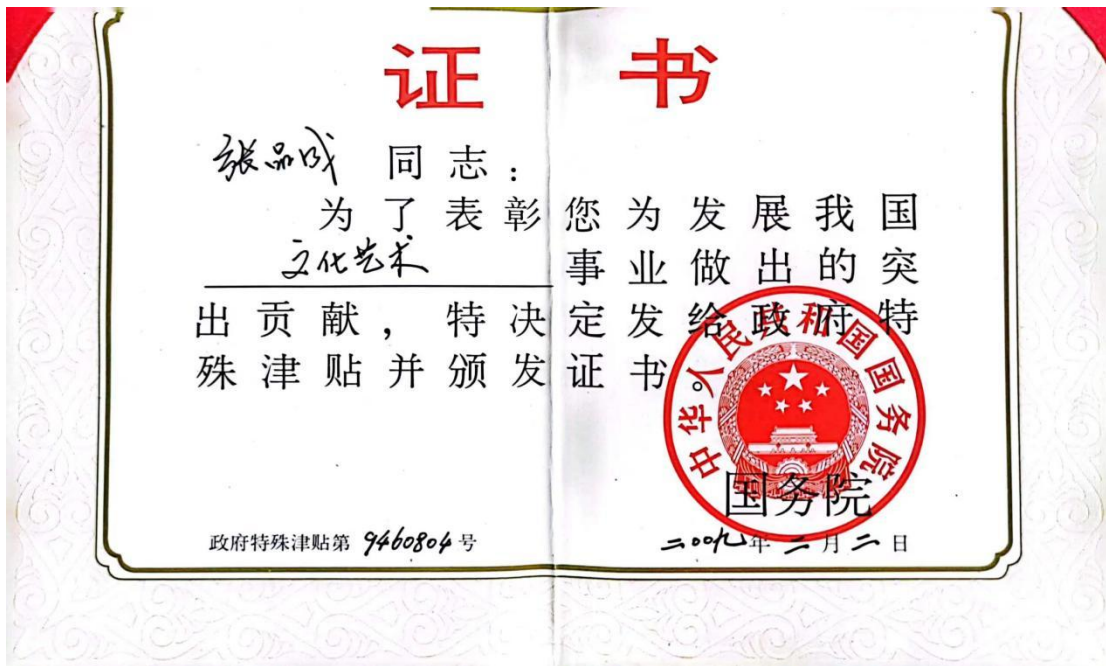 证 书
张品成 同志：
为了表彰您为发展我国
文化艺术 事业做出的突
出贡献，特决定发给政府特
殊津贴并颁发证书。
中华人民共和国国务院
国务院
政府特殊津贴第 9460804 号
二00九年 二 月 二 日